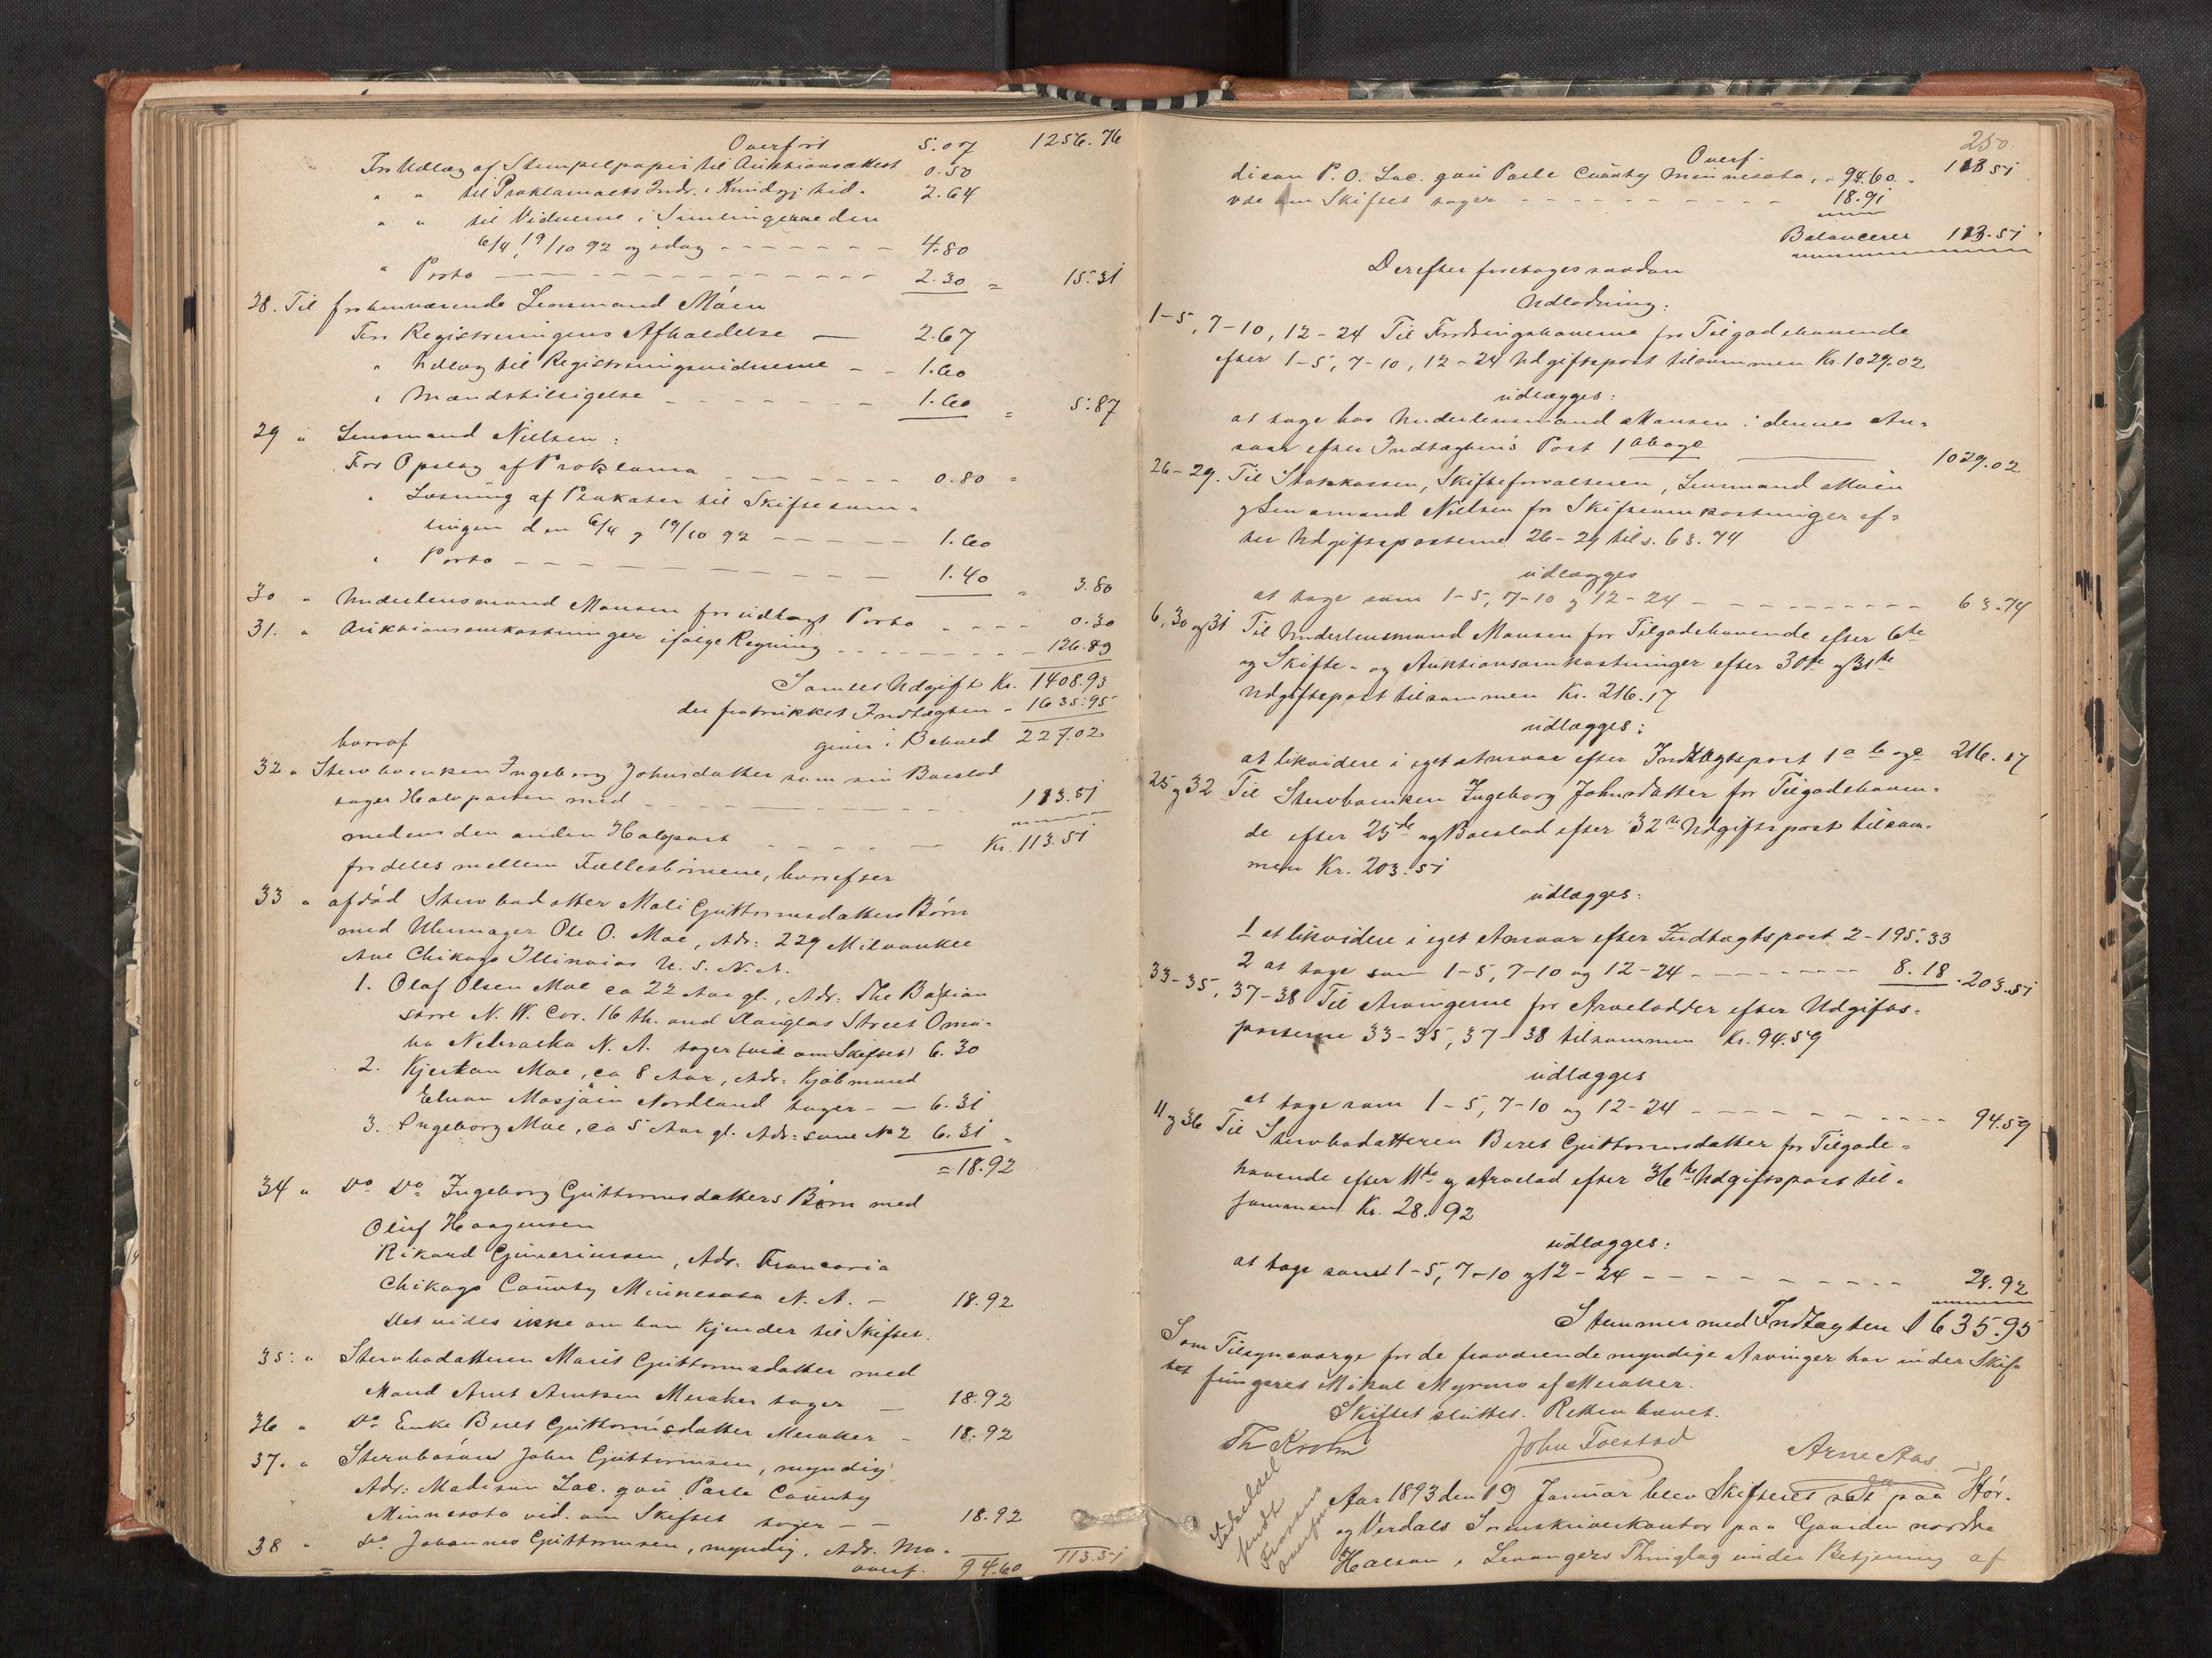 Overført 5.07 1256.76
For Udlæg af Stempelpapir til Auktionsakest 0.50
" " til Proklamaets Indr. i Kundgj. tid. 2.64
" " til Vidnerne i Samlingerne den
6/4, 19/10 92 og idag 4.80
" Porto 2.30 = 15.31
28. Til forhenværende Lensmand Moen
For Registreringens Afholdelse 2.67
" Udlæg til Registreringsvidnerne 1.60
" Mandstilsigelse 1.60 = 5.87
29 " Lensmand Nielsen:
For Opslag af Proklama 0.80 =
" Læsning af Plakater til Skiftesam-
lingen den 6/4 og 19/10 92 1.60
" Porto 1.40 = 3.80
30 " Underlensmand Monsen for udlagt Porto 0.30
31. " Auktionsomkostninger ifølge Regning 126.89
Samlet Udgift Kr. 1408.93
der fratrukket Indtægten " 1635.95
giver i Behold 227.02
hvoraf
32 " Stervboenken Ingeborg Johnsdatter som sin Boeslod
tager Halvparten med 113.51
medens den anden Halvpart Kr. 113.51
fordeles mellem Fællesbørnene, hvorefter
33 " afdød Stervbodatter Mali Guttormsdatters Børn
med Uhrmager Ole O. Moe, Adr: 229 Milvaukee
Ave Chikago Illinoias U. S. N. A.
1. Olaf Olsen Moe ca 22 Aar gl., Adr: The Bostian
store N. W. Cor. 16 th. and Dauglas Street Oma-
ha Nebraska N. A. tager (vid om Skiftet) 6.30
2. Kjerstan Moe, ca 8 Aar, Adr: Kjøbmand
Eluan Mosjøen Nordland tager 6.31
3. Ingeborg Moe, ca 5 Aar gl. Adr: som N 2 6.31 =
= 18.92
34 " Do Do Ingeborg Guttormsdatters Børn med
Oluf Haagensen
Rikard Guneriussen, Adr. Franconia
Chikago County Minnesota N. A. 18.92
Det vides ikke om han kjender til Skiftet.
35. " Stervbodatteren Marit Guttormsdatter med
Mand Arnt Arntsen Meraker tager 18.92
36 " Do Enke Beret Guttormsdatter Meraker 18.92
37. " Stervbosøn John Guttormsen, myndig
Adr: Madison Lac. qui Parle County
Minnesota vid. om Skiftet tager 18.92
38 " Do Johannes Guttormsen, myndig, Adr. Ma-
overf. 94.60 113.51
250.
Overf. 113.51
dison P. O. Lac. qui Parle County Minnesota, " 94.60
vee om Skiftet tager 18.91
Balancerer 113.51
Derefter foretages saadan
Udlodning:
1-5, 7-10, 12-24 Til Fordringshaverne for Tilgodehavende
efter 1-5, 7-10, 12-24 Udgiftspost tilsammen Kr. 1029.02
udlægges:
at tage hos Underlensmand Monsen i dennes An-
svar efter Indtægtens Post 1 a b og c 1029.02
26-29. Til Statskassen, Skifteforvalteren, Lensmand Moen
og Lensmand Nielsen for Skifteomkostninger ef-
ter Udgiftsposterne 26-29 tils. 63.74
udlægges
at tage som 1-5, 7-10 og 12-24 63.74
6, 30 og 31 Til Underlensmand Monsen for Tilgodehavende efter 6te
og Skifte- og Auktionsomkostninger efter 30te og 31te
Udgiftspost tilsammen Kr. 216.17
udlægges:
at likvidere i eget Ansvar efter Indtægtspost 1 a b og c 216.17
25 og 32 Til Stervboenken Ingeborg Johnsdatter for Tilgodehaven-
de efter 25de og Boeslod efter 32te Udgiftspost tilsam-
men Kr. 203.51
udlægges:
1 at likvidere i eget Ansvar efter Indtægtspost 2 - 195.33
2 at tage som 1-5, 7-10 og 12-24 8.18 . 203.51
33-35, 37-38 Til Arvingerne for Arvelodder efter Udgifts-
posterne 33-35, 37-38 tilsammen Kr. 94.59
udlægges
at tage som 1-5, 7-10 og 12-24 94.59
11 og 36 Til Stervbodatteren Beret Guttormsdatter for Tilgode-
havende efter 11te og Arvelod efter 36te Udgiftspost til-
sammen Kr. 28.92
udlægges:
at tage som 1-5, 7-10 og 12-24 28.92
Stemmer med Indtægten 1635.95
Som Tilsynsværge for de fraværende myndige Arvinger har under Skif-
tet fungeret Mikal Myrmo af Meraker.
Skiftet sluttet. Retten hævet.
Th Krohn John Foestad Arne Aas
Aar 1893 den 19 Januar blev Skifteret sat paa Stør-
og Verdals Sorenskriverkontor paa Gaarden nordre
Halsan i Levangers Thinglag under Betjening af